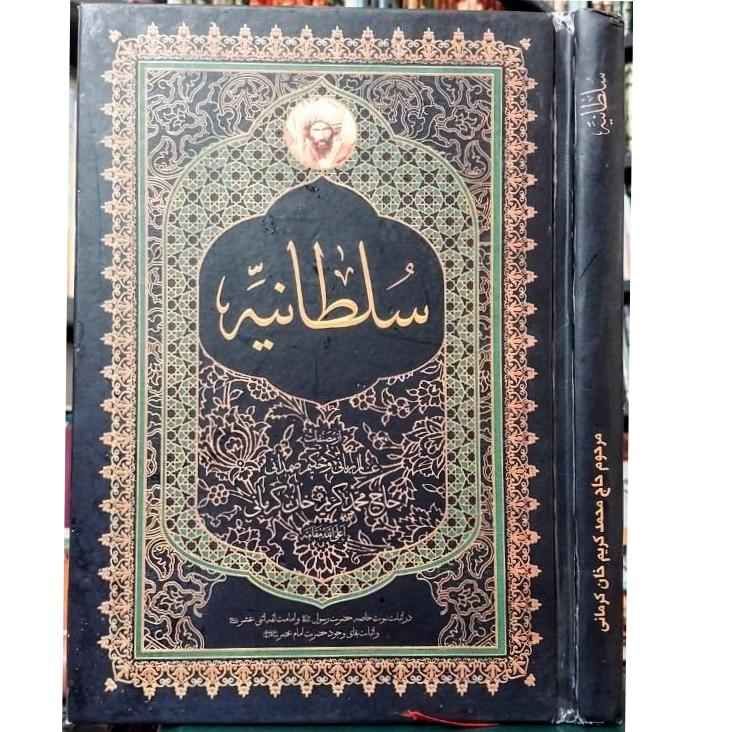 سُلطانیّه
از مصنفات
عالم ربانی و حکیم صمدانی
حاج محمد کریم خان کرمانی
اعلی الله مقامه
در اثبات نبوت خاصه حضرت رسول ﷺ و امامت ائمه اثنی عشر
و اثبات بقای وجود حضرت امام عصر
سلطانیّه
مرحوم حاج محمد کریم خان کرمانی